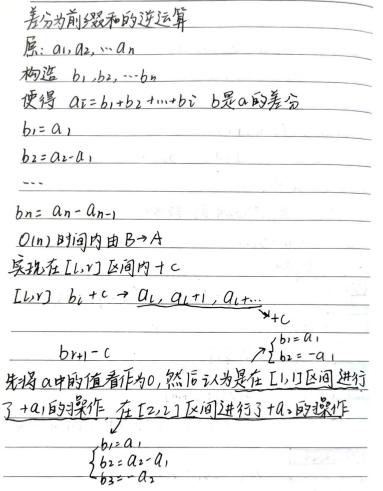 差分为前缀和的逆运算
原: a1, a2, … an
构造 b1, b2, … bn
使得 ai = b1 + b2 + … + bi b是a的差分
b1 = a1
b2 = a2 - a1
…
bn = an - an-1
O(n) 时间内由 B→A
实现在 [l,r] 区间内 + c
[l,r] bl + c → al, al+1, al+…
+c
br+1 - c
{ b1 = a1
b2 = -a1
先将a中的值看作为0, 然后认为是在 [1,1] 区间进行
了 +a1 的操作, 在 [2,2] 区间进行了 +a2 的操作
{ b1 = a1
b2 = a2 - a1
b3 = -a2